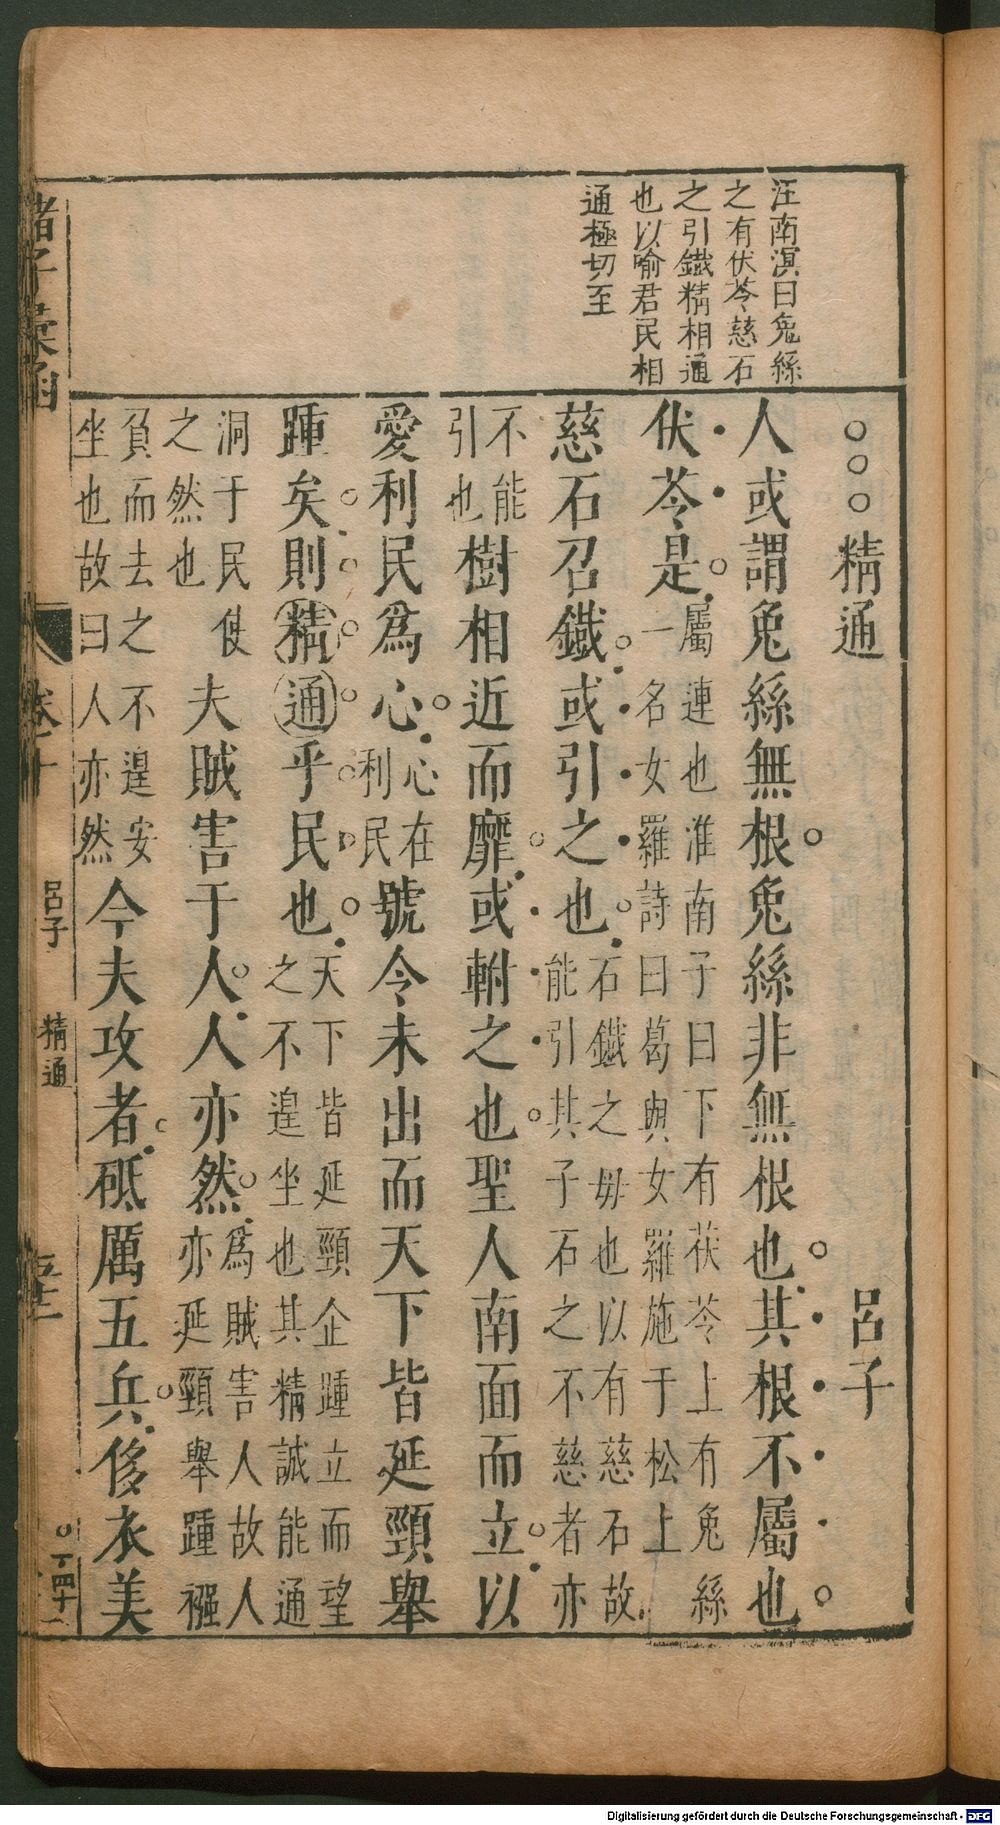 汪南溟曰兔絲
之有伏苓慈石
之引鐵精相通
也以喻君民相
通極切至
○○○精通 呂子
人或謂兔絲無根兔絲非無根也其根不屬也
伏苓是屬連也淮南子曰下有茯苓上有兔絲一名女羅詩曰葛與女羅施于松上
慈石召鐵或引之也石鐵之毋也以有慈石故能引其子石之不慈者亦
不能引也樹相近而靡或軵之也聖人南面而立以
愛利民爲心心在利民號令未出而天下皆延頸舉
踵矣則精通乎民也天下皆延頸企踵立而望之不遑坐也其精誠能通
洞于民使之然也夫賊害于人人亦然爲賊害人故人亦延頸舉踵襁
負而去之不遑安坐也故曰人亦然今夫攻者砥厲五兵侈衣美
諸子彙函 卷十 呂子 精通 五十二
Digitalisierung gefördert durch die Deutsche Forschungsgemeinschaft - DFG